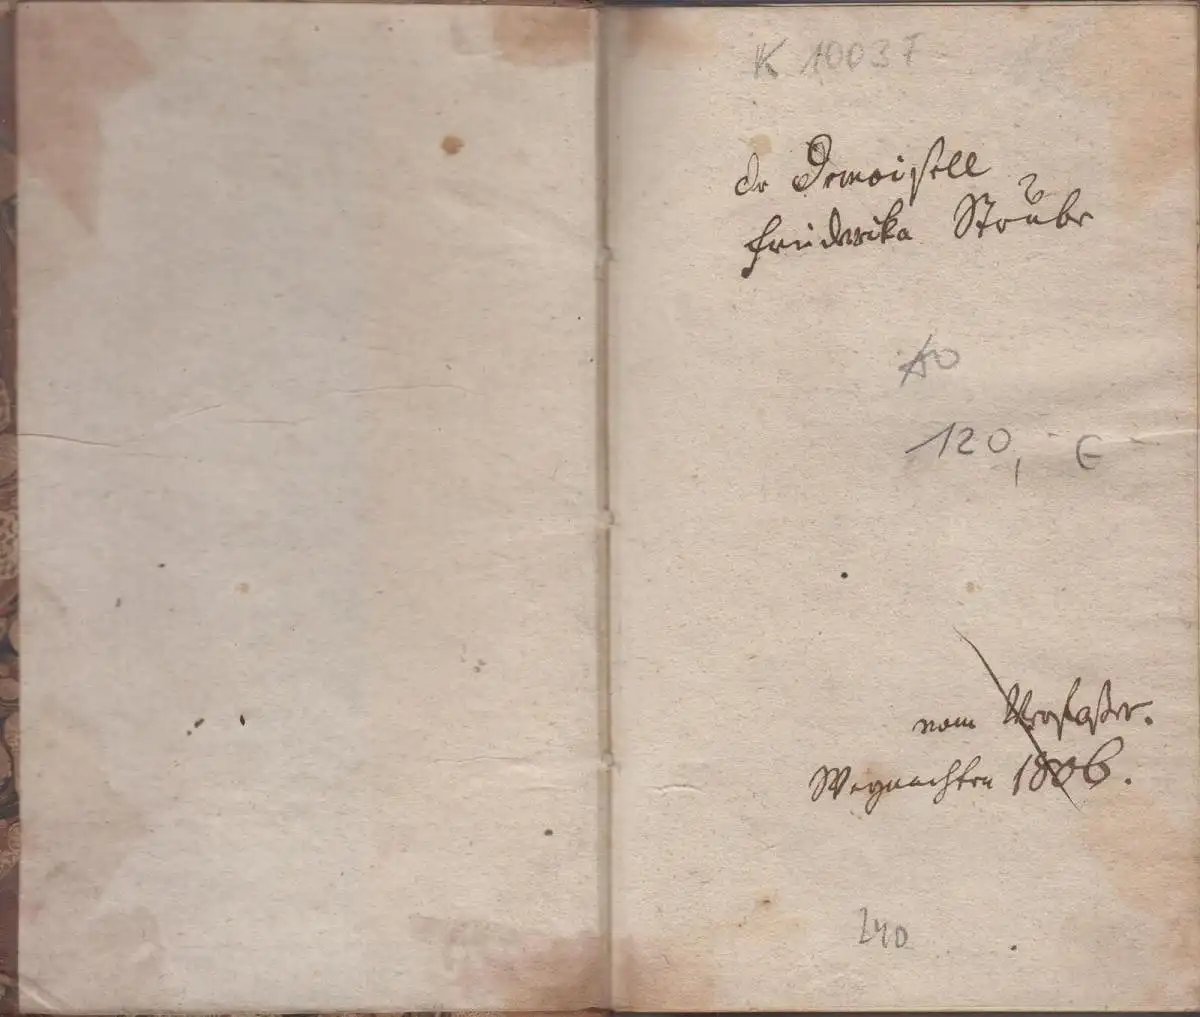 K 10037
der Demoisell
Friederika Ströbe
120,- €
vom Verfaßer.
Weynachten 1806.
240